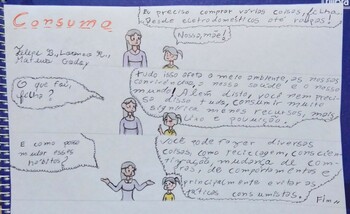 Consumo
Felipe B., Lorenzo R.,
Matheus Godoy
Eu preciso comprar várias coisas, filha.
Desde eletrodomésticos até roupas!
Nossa, mãe!
O que foi,
filha?
Tudo isso afeta o meio ambiente, as nossas
a nossa saúde e o nosso
mundo! Além disto, você nem preci-
sa disso tudo, consumir muito
significa menos recursos, mais
lixo e poluição.
E como posso
mudar esses
hábitos?
Você pode fazer diversas
coisas, como reciclagem, conscien-
tização, mudança de com-
pras, de comportamentos e
principalmente evitar as
práticas consumistas.
Fim